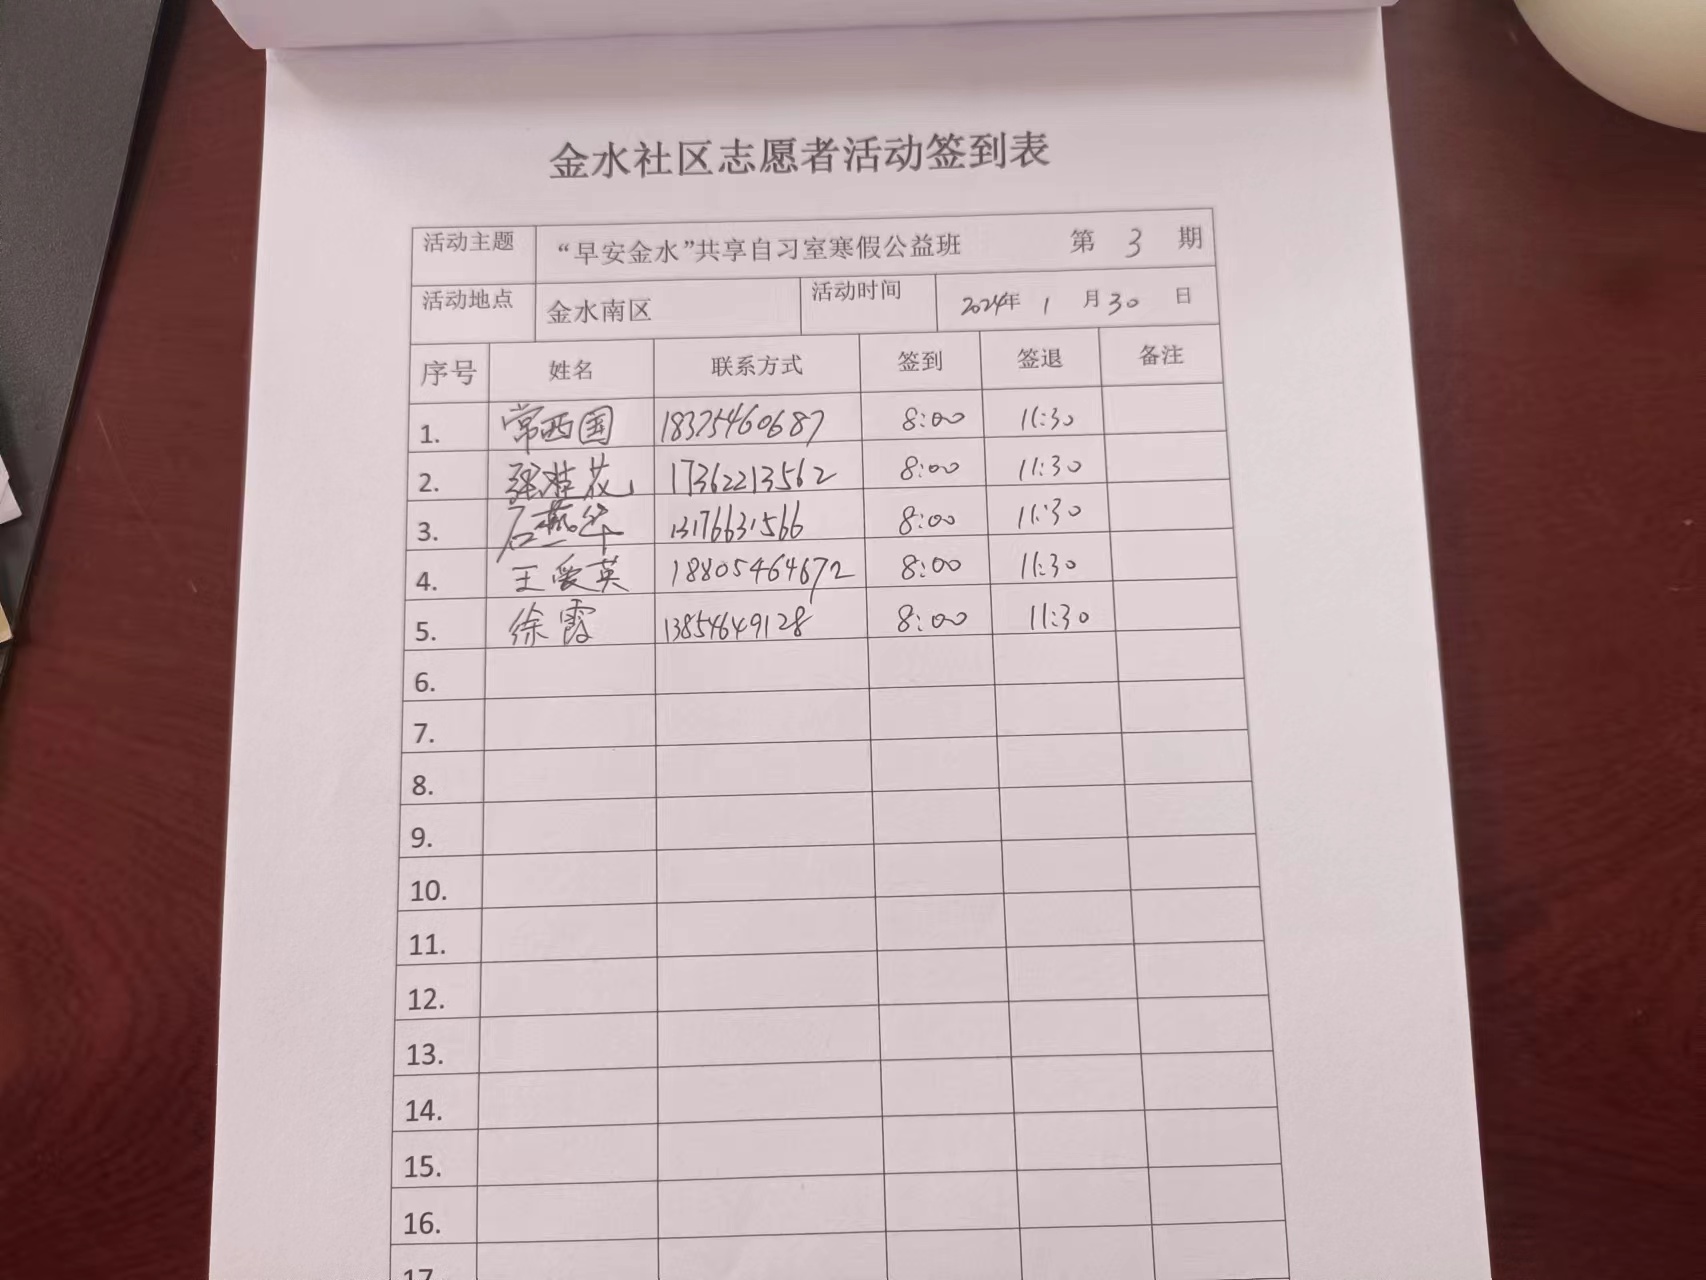 金水社区志愿者活动签到表
活动主题 “早安金水”共享自习室寒假公益班 第 3 期
活动地点 金水南区 活动时间 2024年 1 月 30 日
序号 姓名 联系方式 签到 签退 备注
1. 常西国 18375460687 8:00 11:30
2. 强桂花 17362213562 8:00 11:30
3. 石燕华 13176631566 8:00 11:30
4. 王爱英 18805464672 8:00 11:30
5. 徐霞 13854649128 8:00 11:30
6.
7.
8.
9.
10.
11.
12.
13.
14.
15.
16.
17.